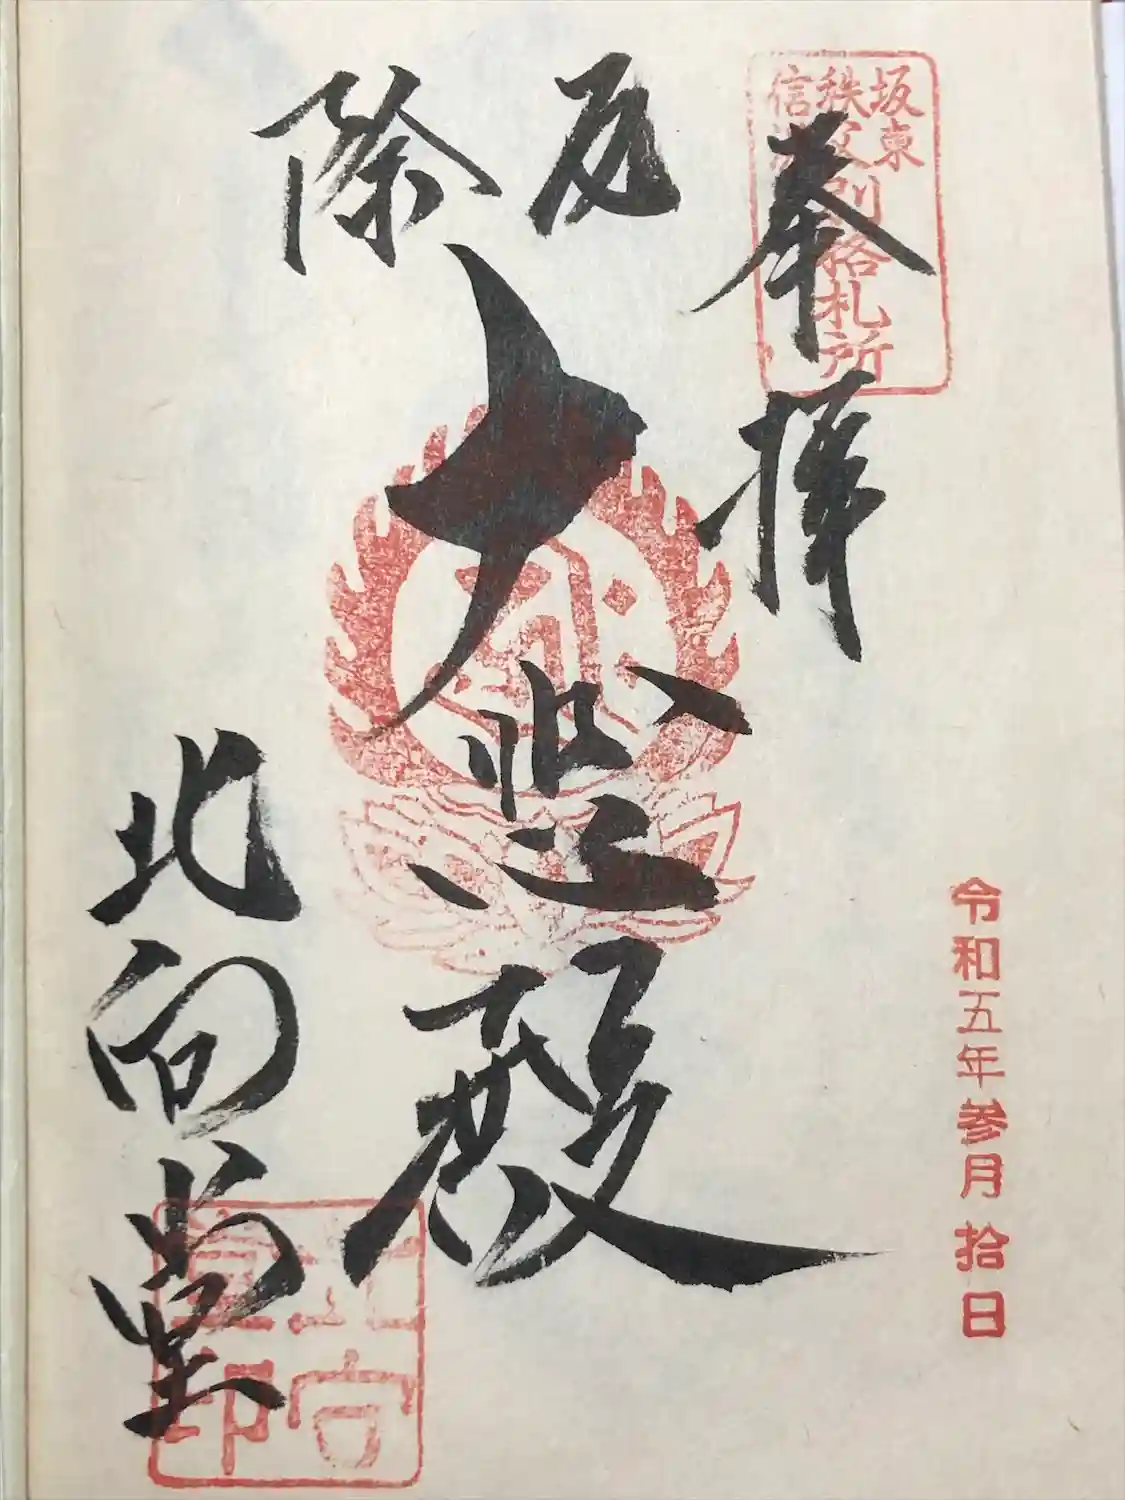 坂東
秩父
信濃
別格札所
奉拝
厄除
大悲殿
北向堂
北向
堂印
令和五年参月拾日